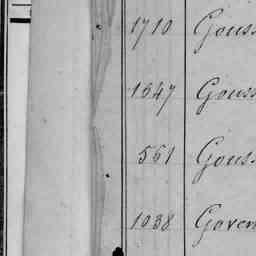 1710 Gouss
1347 Gouss
561 Gouss
1038 Gover